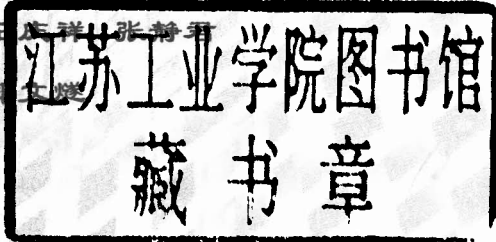 庆祥 张静君
江苏工业学院图书馆
文燧
藏书章